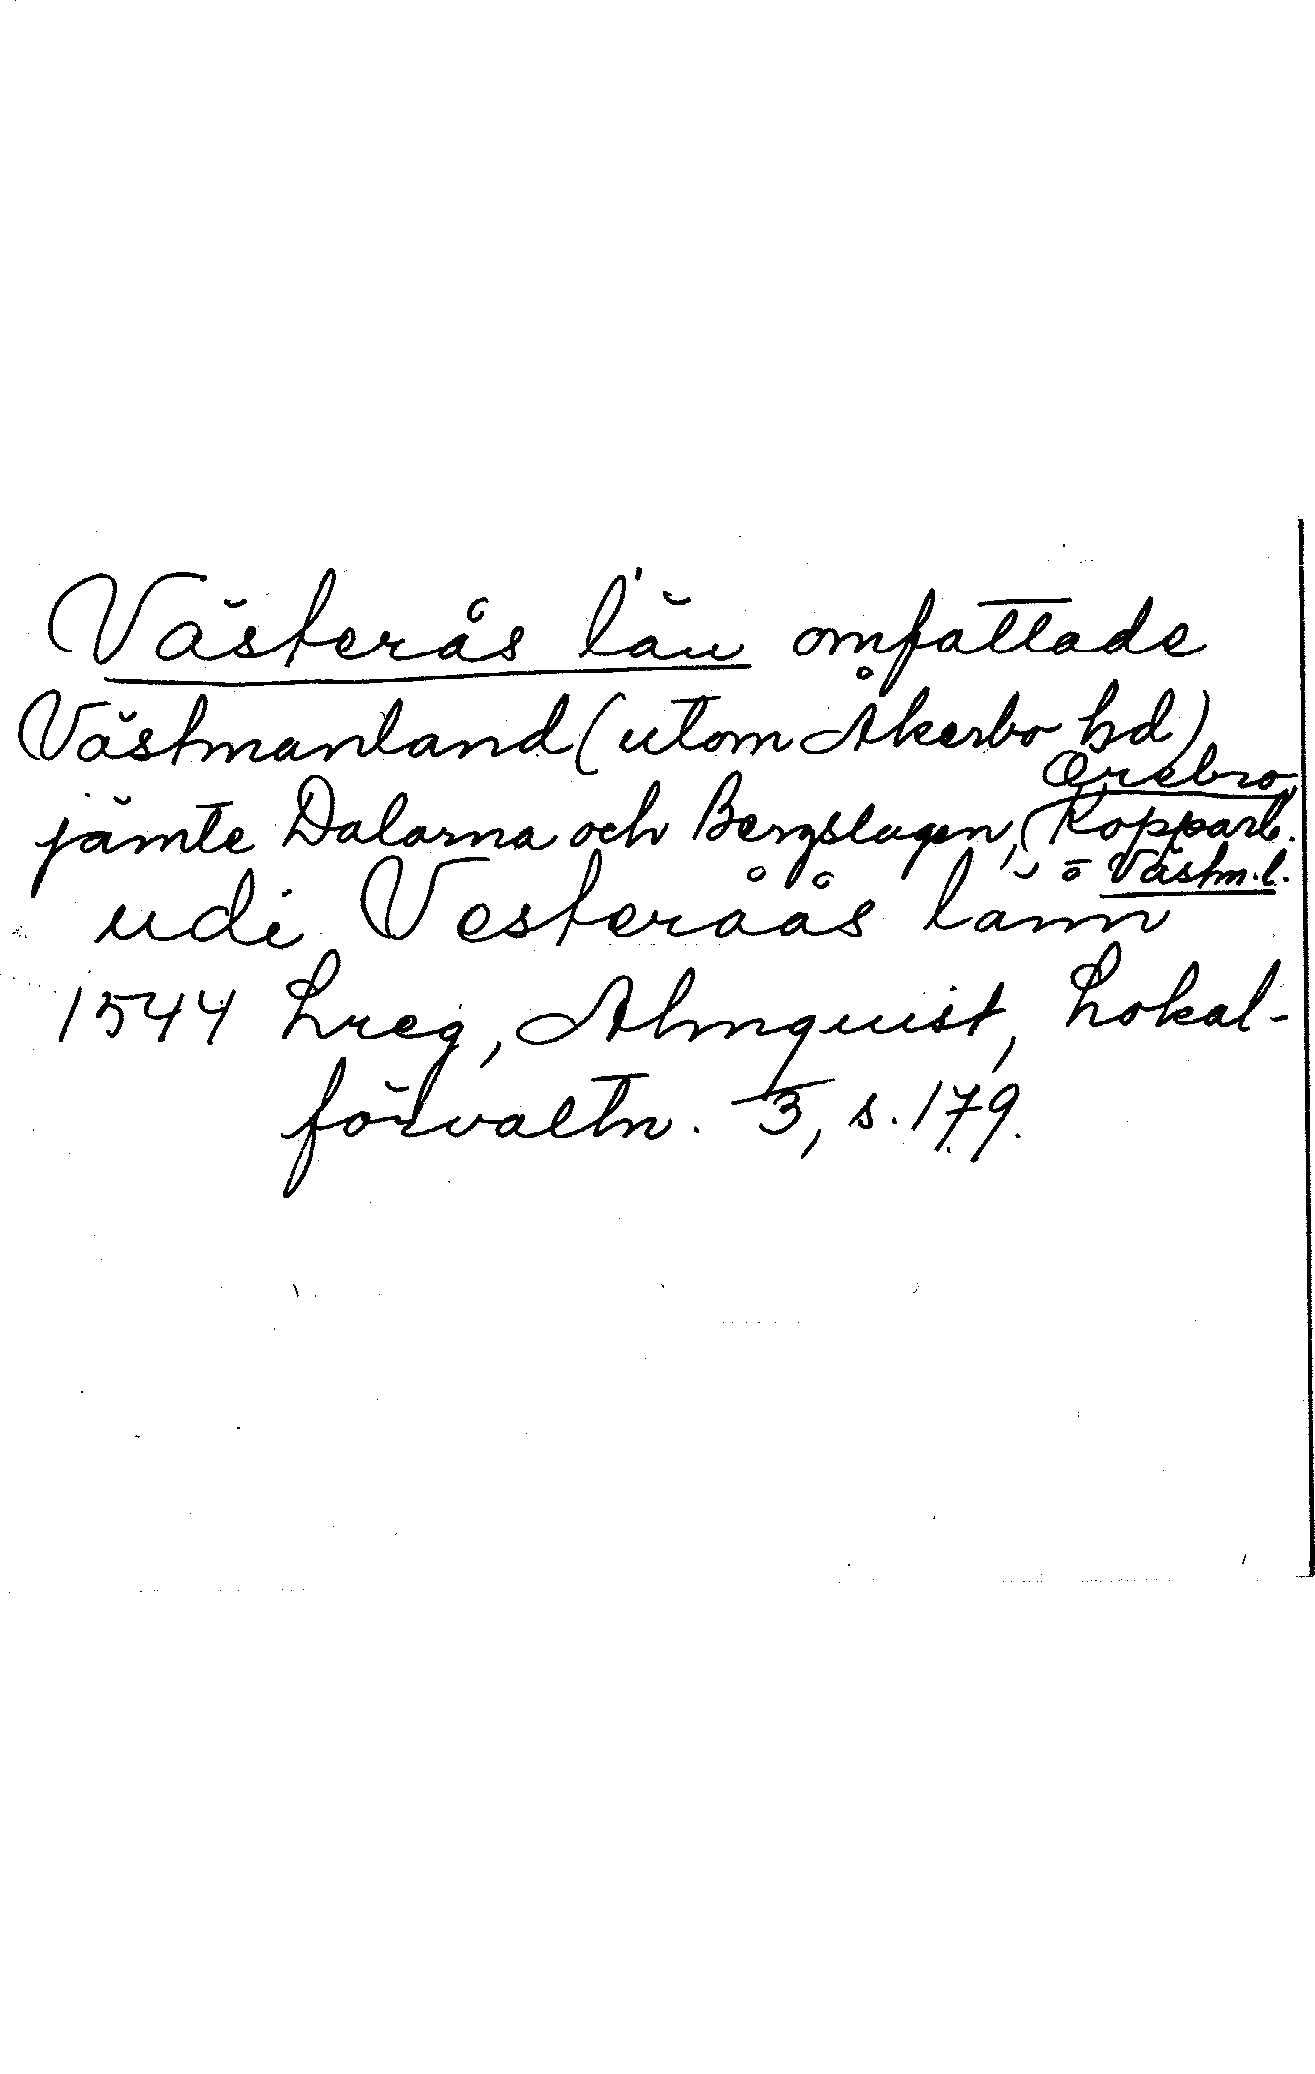 Västerås län omfattade
Västmanland (utom Åkerbo hd)
jämte Dalarna och Bergslagen, (Örebro,
Kopparb.
o Västm.l.
udi Vesteråås länn
1544 Lreg, Almquist, Lokal-
förvaltn. 3, s. 179.